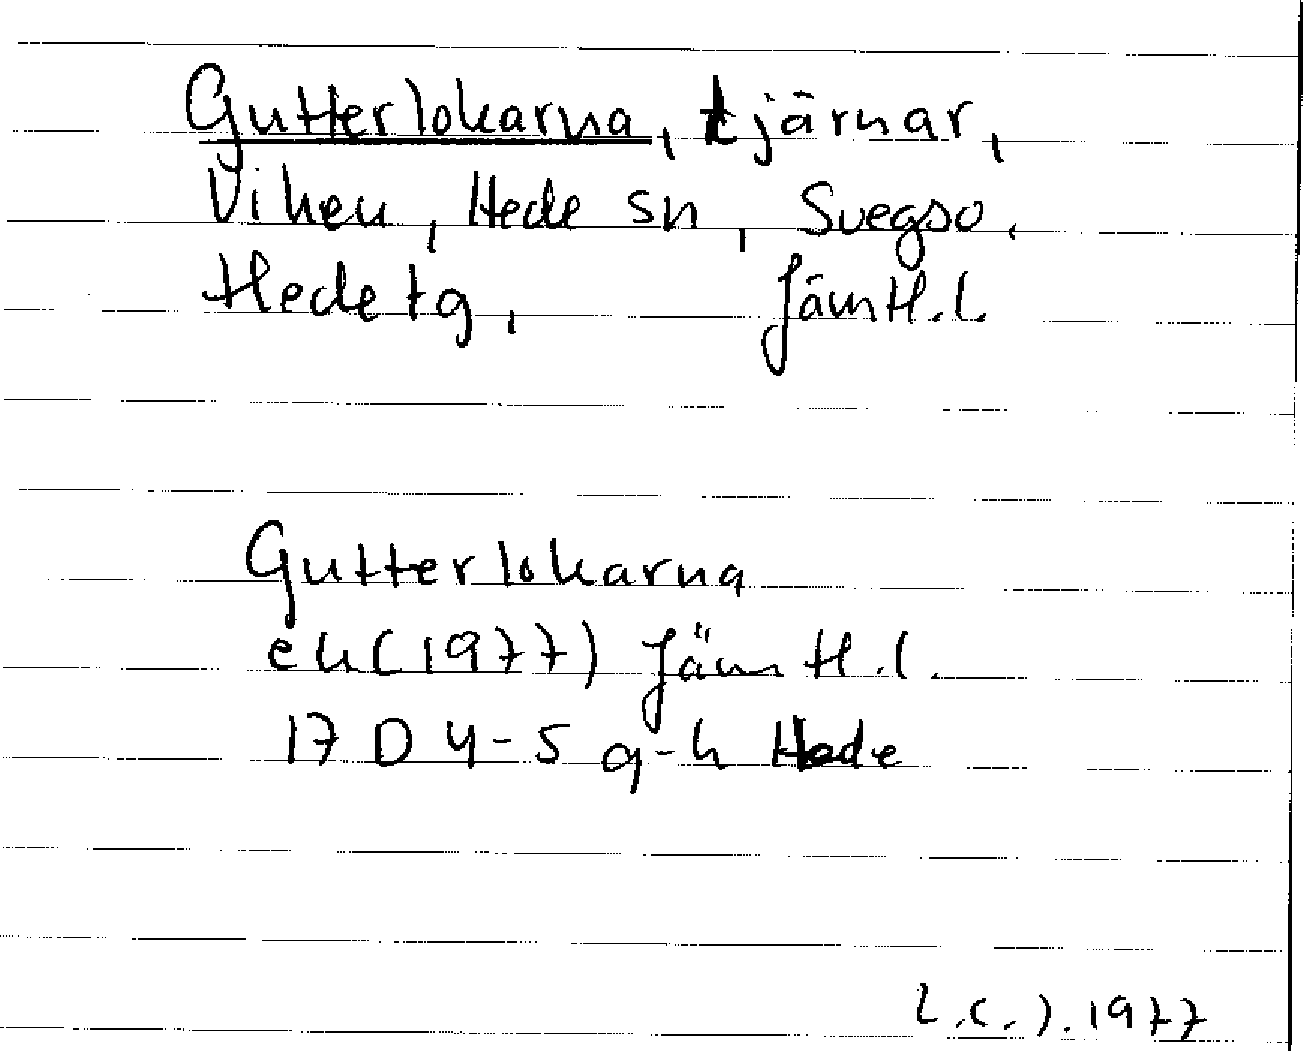 Gutterlokarna, tjärnar,
Viken, Hede sn, Svegso.
Hede tg, Jämtl.l.
Gutterlokarna
ek(1977) Jämtl.l.
17 D 4-5 g-h Hede
L.C.J. 1977